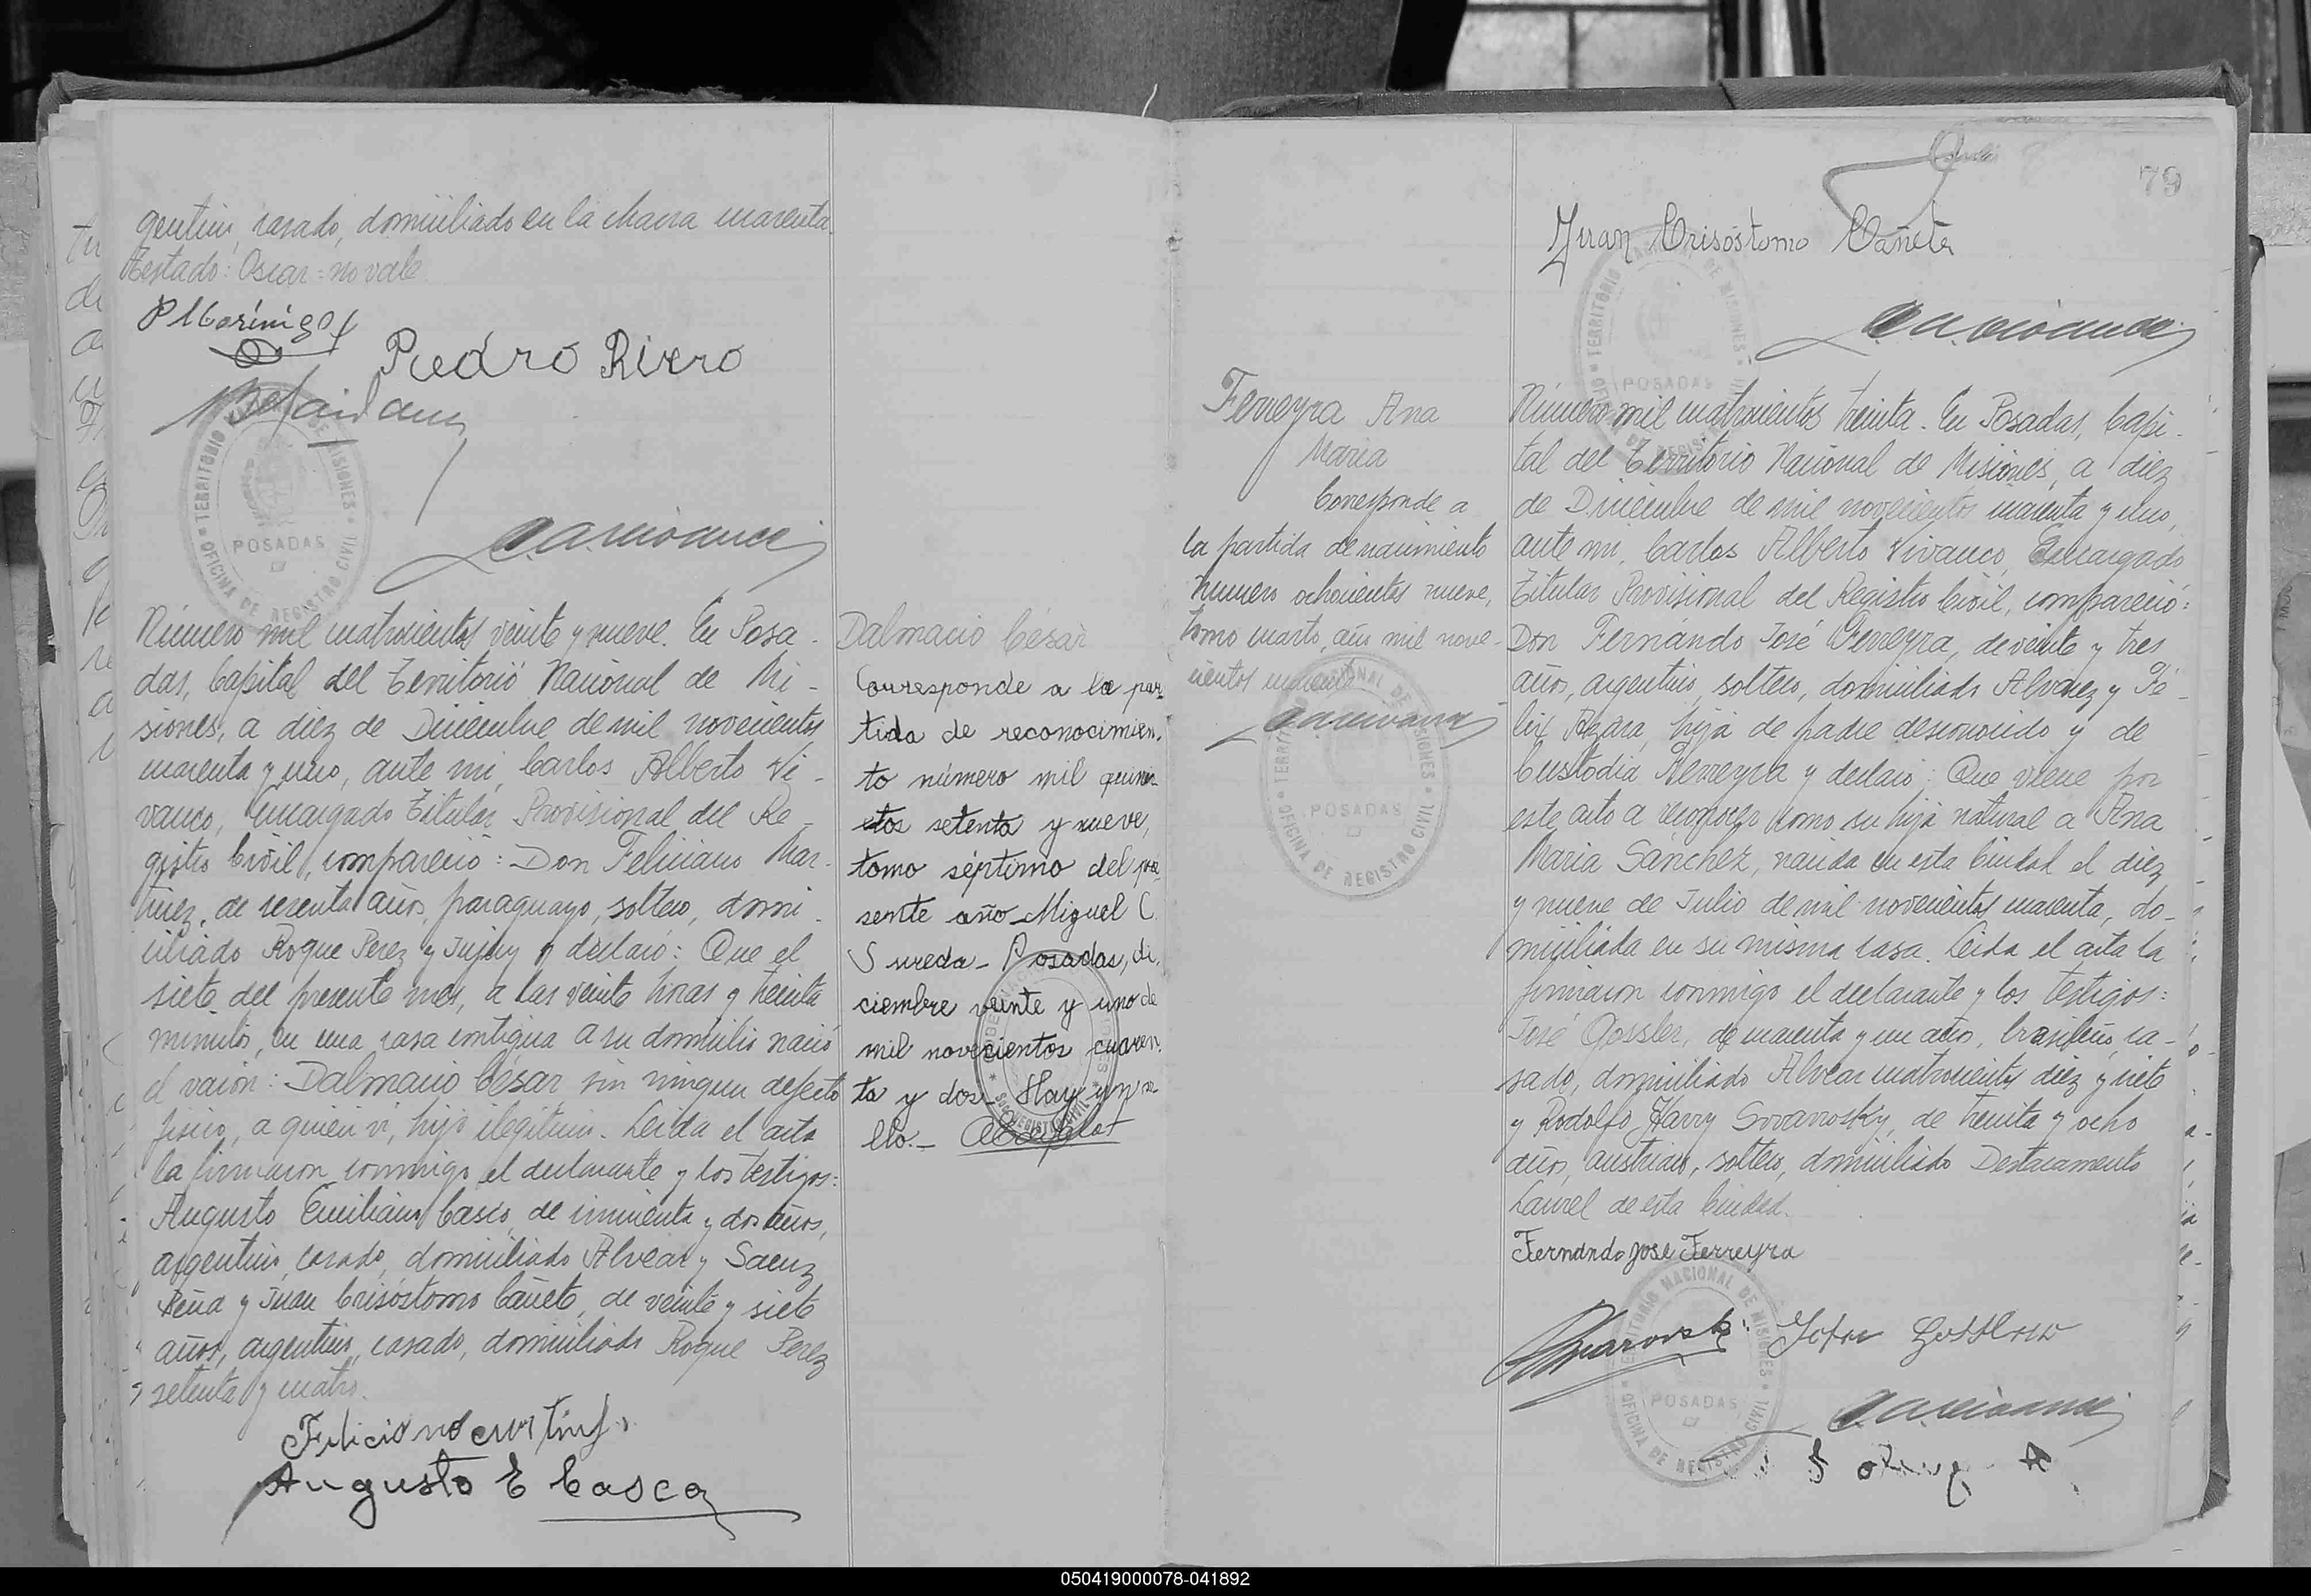 gentino, casado, domiciliado en la chacra cuarenta.
Testado: Oscar = no vale
Pedro Rivero
TERRITORIO NACIONAL DE MISIONES
POSADAS
OFICINA DE REGISTRO CIVIL
Número mil cuatrocientos veinte y nueve. En Posa-
das, Capital del Territorio Nacional de Mi-
siones, a diez de Diciembre de mil novecientos
cuarenta y uno, ante mi, Carlos Alberto Vi-
vanco, Encargado Titular Provisional del Re-
gistro Civil, compareció: Don Feliciano Mar-
tinez, de sesenta años, paraguayo, soltero, domi-
ciliado Roque Perez y Jujuy y declaró: Que el
siete del presente mes, a las veinte horas y treinta
minutos, en una casa contigua a su domicilio nació
el varón: Dalmacio César, sin ningun defecto
fisico, a quien vi, hijo ilegitimo. Leida el acta
la firmaron conmigo el declarante y los testigos:
Augusto Emiliano Casco, de cincuenta y dos años,
argentino, casado, domiciliado Alvear y Saenz
Peña y Juan Crisóstomo Cañete, de veinte y siete
años, argentino, casado, domiciliado Roque Perez
setenta y cuatro.
Feliciano
Augusto E Casco
Dalmacio César
Corresponde a la par-
tida de reconocimien-
to número mil quinien-
tos setenta y nueve,
tomo séptimo del pre-
sente año Miguel C.
Sureda - Posadas, di-
ciembre veinte y uno de
mil novecientos cuaren-
ta y dos - Hay un se-
llo.-
79
Juan Crisóstomo Cañete
TERRITORIO NACIONAL DE MISIONES
POSADAS
Ferreyra Ana
Maria
Corresponde a
la partida de nacimiento
numero ochocientos nueve,
tomo cuarto, año mil nove-
cientos cuarenta
TERRITORIO NACIONAL DE MISIONES
POSADAS
OFICINA DE REGISTRO CIVIL
Número mil cuatrocientos treinta. En Posadas, Capi-
tal del Territorio Nacional de Misiones, a diez
de Diciembre de mil novecientos cuarenta y uno,
ante mi, Carlos Alberto Vivanco, Encargado
Titular Provisional del Registro Civil, compareció:
Don Fernándo José Ferreyra, de veinte y tres
años, argentino, soltero, domiciliado Alvarez y Fé-
lix Azara, hijo de padre desconocido y de
Custodia Ferreyra y declaró: Que viene por
este acto a reconocer como su hija natural a Ana
Maria Sánchez, nacida en esta Ciudad el diez
y nueve de Julio de mil novecientos cuarenta, do-
miciliada en su misma casa. Leida el acta la
firmaron conmigo el declarante y los testigos:
José Gossler, de cuarenta y un año, brasileño, ca-
sado, domiciliado Alvear cuatrocientos diez y siete
y Rodolfo Harry Sovarosky, de treinta y ocho
años, austriaco, soltero, domiciliado Destacamento
Laurel de esta Ciudad.
Fernando José Ferreyra
TERRITORIO NACIONAL DE MISIONES
POSADAS
OFICINA DE REGISTRO CIVIL
050419000078-041892